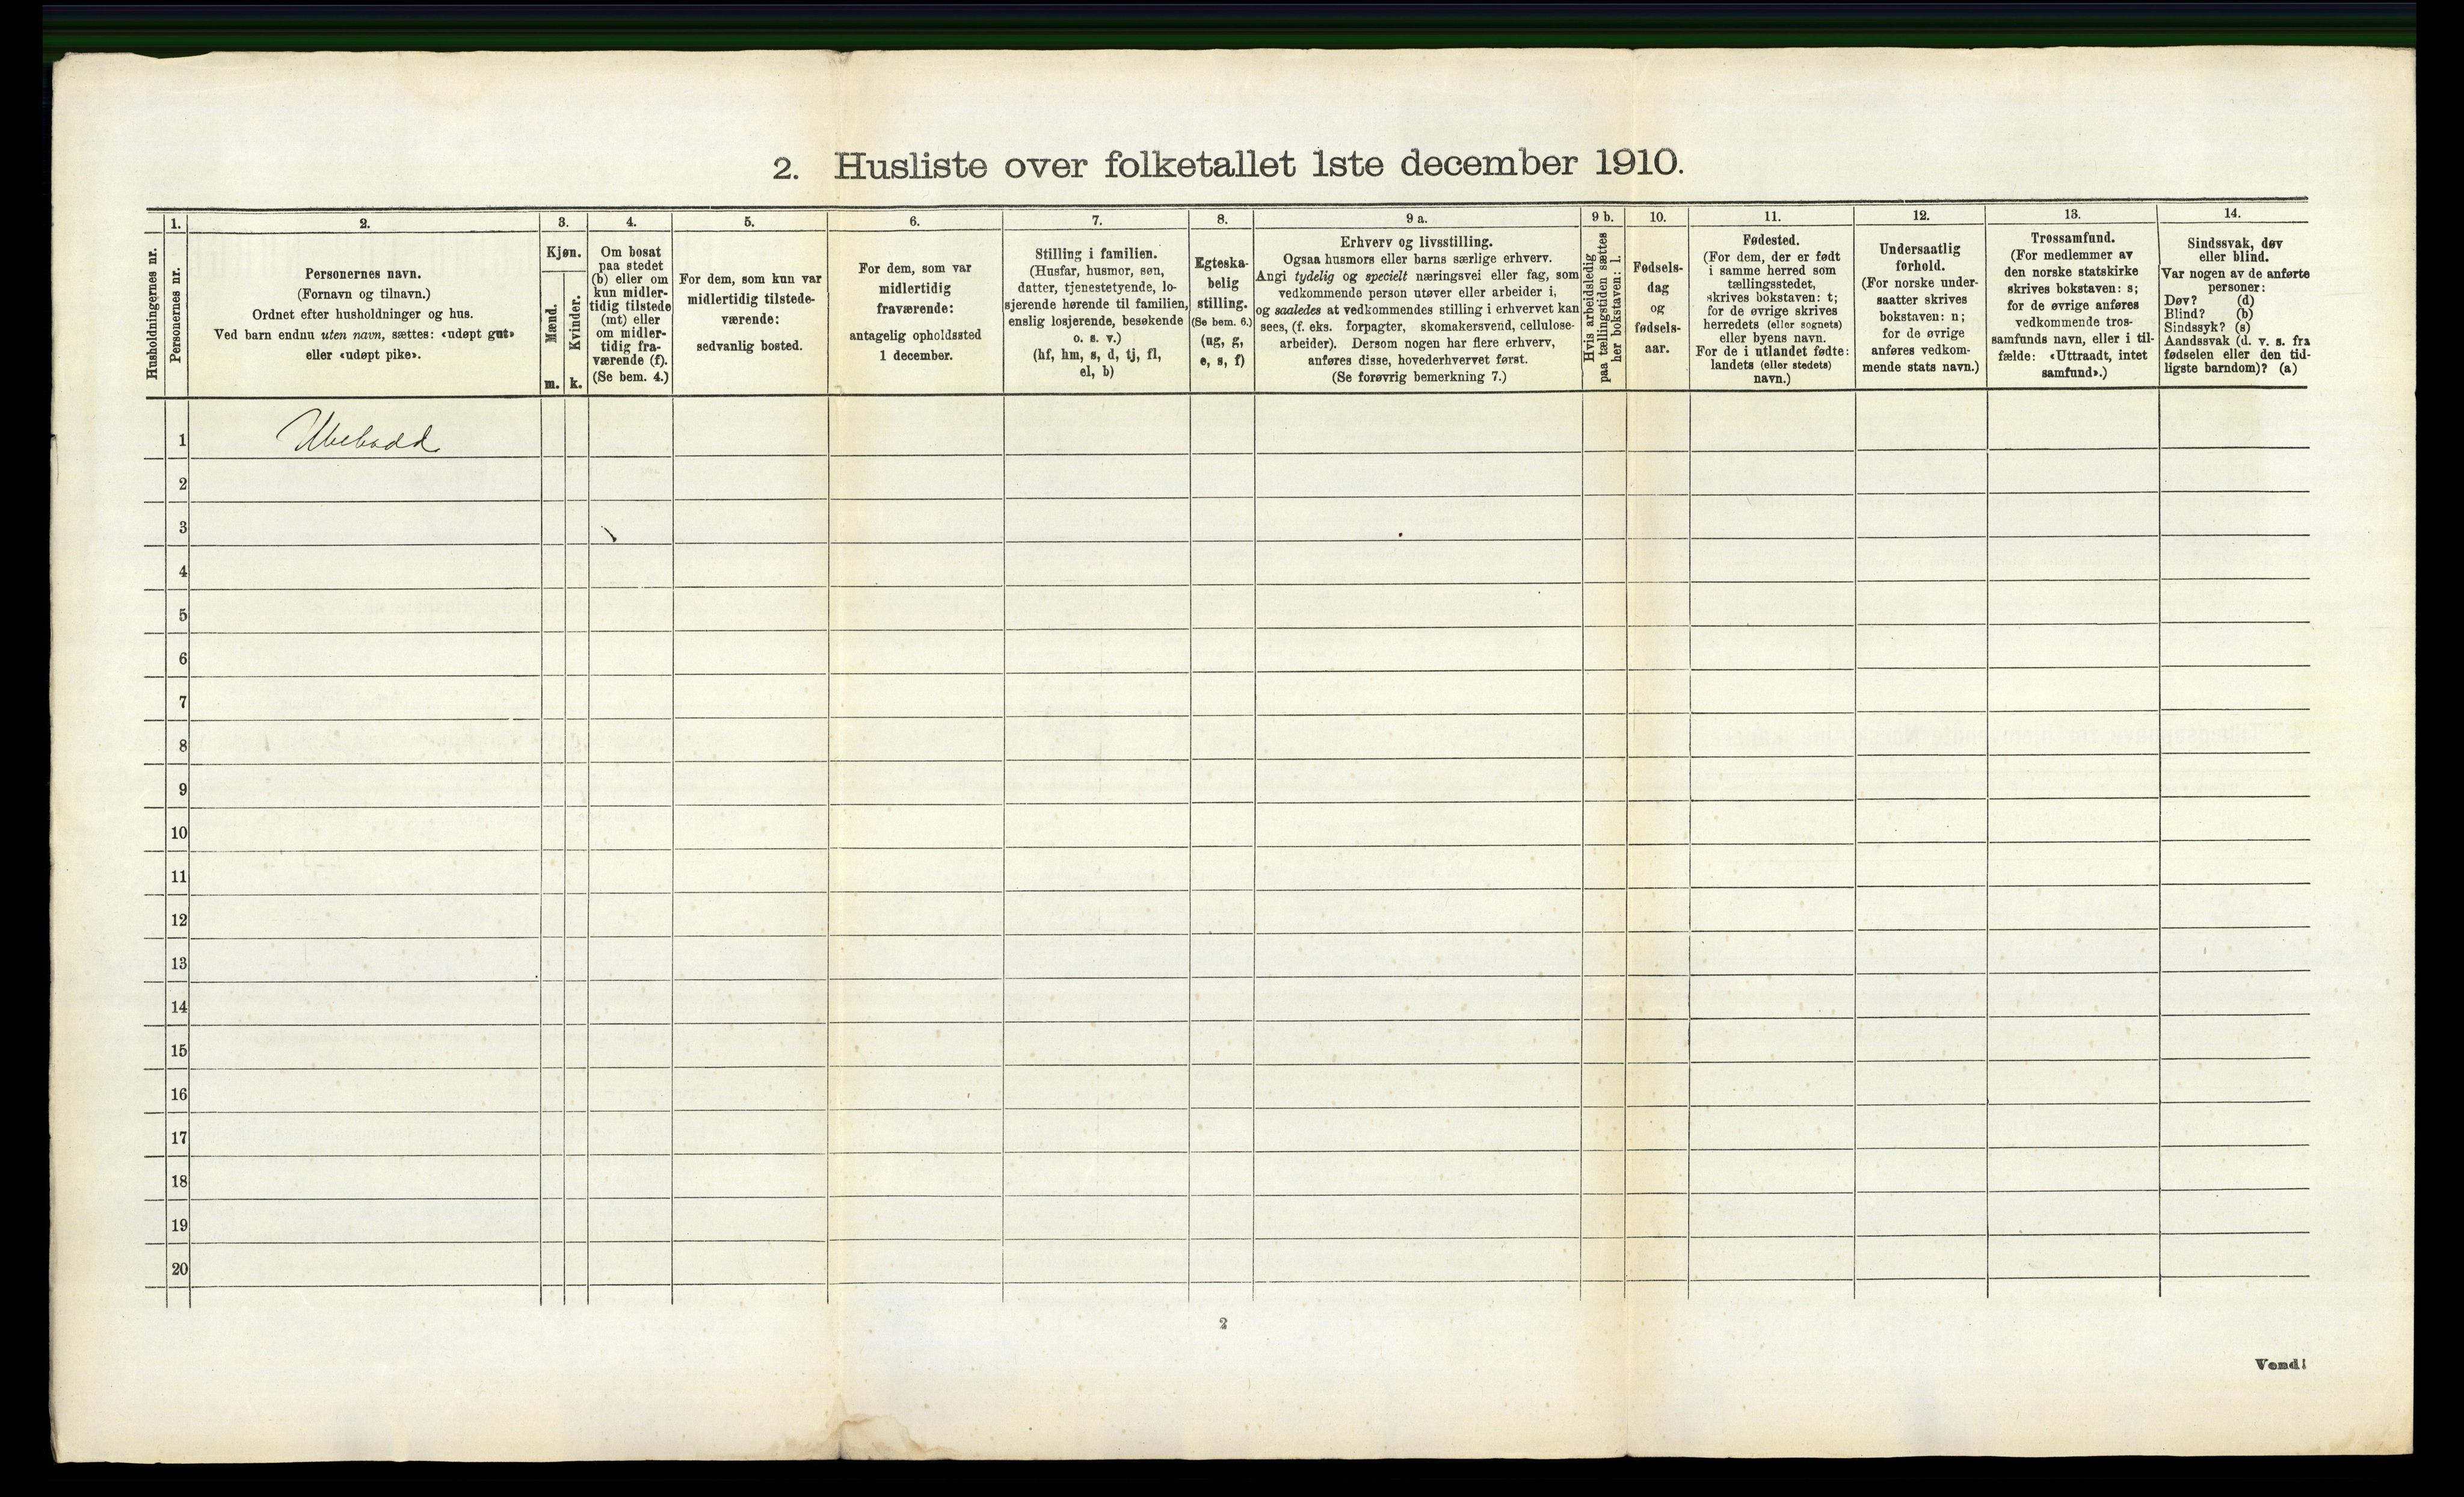 2. Husliste over folketallet 1ste december 1910.
Husholdningernes nr.
1.
Personernes nr.
2.
Personernes navn.
(Fornavn og tilnavn.)
Ordnet efter husholdninger og hus.
Ved barn endnu uten navn, sættes: «udøpt gut»
eller «udøpt pike».
3.
Kjøn.
Mænd.
m.
Kvinder.
k.
4.
Om bosat
paa stedet
(b) eller om
kun midler-
tidig tilstede
(mt) eller
om midler-
tidig fra-
værende (f).
(Se bem. 4.)
5.
For dem, som kun var
midlertidig tilstede-
værende:
sedvanlig bosted.
6.
For dem, som var
midlertidig
fraværende:
antagelig opholdssted
1 december.
7.
Stilling i familien.
(Husfar, husmor, søn,
datter, tjenestetyende, lo-
sjerende hørende til familien,
enslig losjerende, besøkende
o. s. v.)
(hf, hm, s, d, tj, fl,
el, b)
8.
Egteska-
belig
stilling.
(Se bem. 6.)
(ug, g,
e, s, f)
9 a.
Erhverv og livsstilling.
Ogsaa husmors eller barns særlige erhverv.
Angi tydelig og specielt næringsvei eller fag, som
vedkommende person utøver eller arbeider i,
og saaledes at vedkommendes stilling i erhvervet kan
sees, (f. eks. forpagter, skomakersvend, cellulose-
arbeider). Dersom nogen har flere erhverv,
anføres disse, hovederhvervet først.
(Se forøvrig bemerkning 7.)
9 b.
Hvis arbeidsledig
paa tællingstiden sættes
her bokstaven: l.
10.
Fødsels-
dag
og
fødsels-
aar.
11.
Fødested.
(For dem, der er født
i samme herred som
tællingsstedet,
skrives bokstaven: t;
for de øvrige skrives
herredets (eller sognets)
eller byens navn.
For de i utlandet fødte:
landets (eller stedets)
navn.)
12.
Undersaatlig
forhold.
(For norske under-
saatter skrives
bokstaven: n;
for de øvrige
anføres vedkom-
mende stats navn.)
13.
Trossamfund.
(For medlemmer av
den norske statskirke
skrives bokstaven: s;
for de øvrige anføres
vedkommende tros-
samfunds navn, eller i til-
fælde: «Uttraadt, intet
samfund».)
14.
Sindssvak, døv
eller blind.
Var nogen av de anførte
personer:
Døv? (d)
Blind? (b)
Sindssyk? (s)
Aandssvak (d. v. s. fra
fødselen eller den tid-
ligste barndom)? (a)
1 Ubebodd
2
3
4
5
6
7
8
9
10
11
12
13
14
15
16
17
18
19
20
2
Vend!